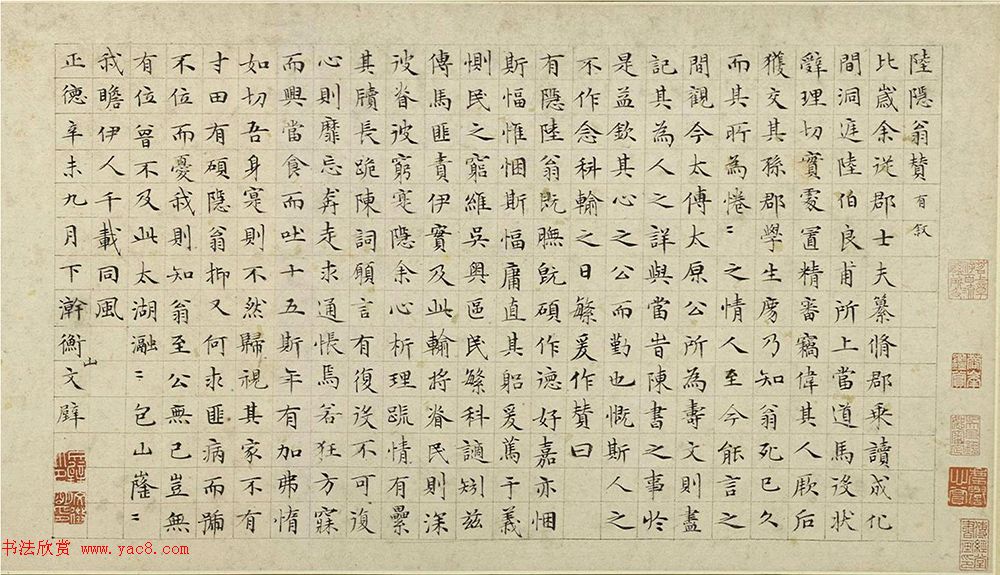 陸隱翁贊有叙
比歲余從郡士夫纂脩郡乘讀成化
間洞庭陸伯良甫所上當道馬役狀
辭理切實處置精審竊偉其人厥后
獲交其孫郡學生廖乃知翁死已久
而其所為惓〻之情人至今能言之
間觀今太傅太原公所為壽文則盡
記其為人之詳與當旹陳書之事於
是益欽其心之公而勤也慨斯人之
不作念科輸之日繁爰作贊曰
有隱陸翁既膴既碩作德好嘉亦悃
斯愊惟悃斯愊庸直其躬爰篤于義
惻民之窮維吳奧區民繁科讁矧茲
傳馬匪責伊實及此輸將眷民則深
彼眷彼窮寔隱余心析理疏情有纍
其牘長跪陳詞願言有復役不可復
心則靡忘奔走求通悵焉若狂方寐
而興當食而吐十五斯年有加弗惰
如切吾身寔則不然歸視其家不有
寸田有碩隱翁抑又何求匪病而
不位而憂我則知翁至公無已豈無
有位曾不及此太湖瀜〻包山嶐〻
我瞻伊人千載同風
正德辛未九月下澣衡山文壁
书法欣赏 www.yac8.com